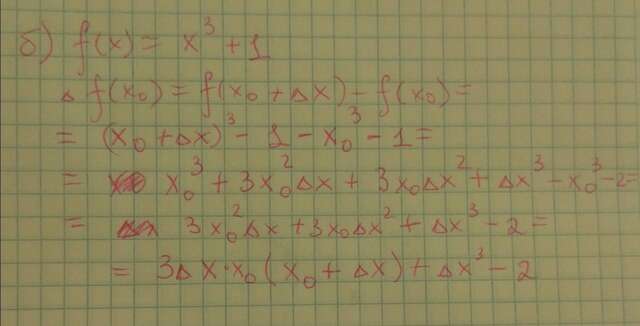 б) f(x) = x³ + 1
Δ f(x₀) = f(x₀ + Δx) - f(x₀) =
= (x₀ + Δx)³ - 1 - x₀³ - 1 =
= x₀³ + 3x₀²Δx + 3x₀Δx² + Δx³ - x₀³ - 2 =
= 3x₀²Δx + 3x₀Δx² + Δx³ - 2 =
= 3Δx·x₀(x₀ + Δx) + Δx³ - 2